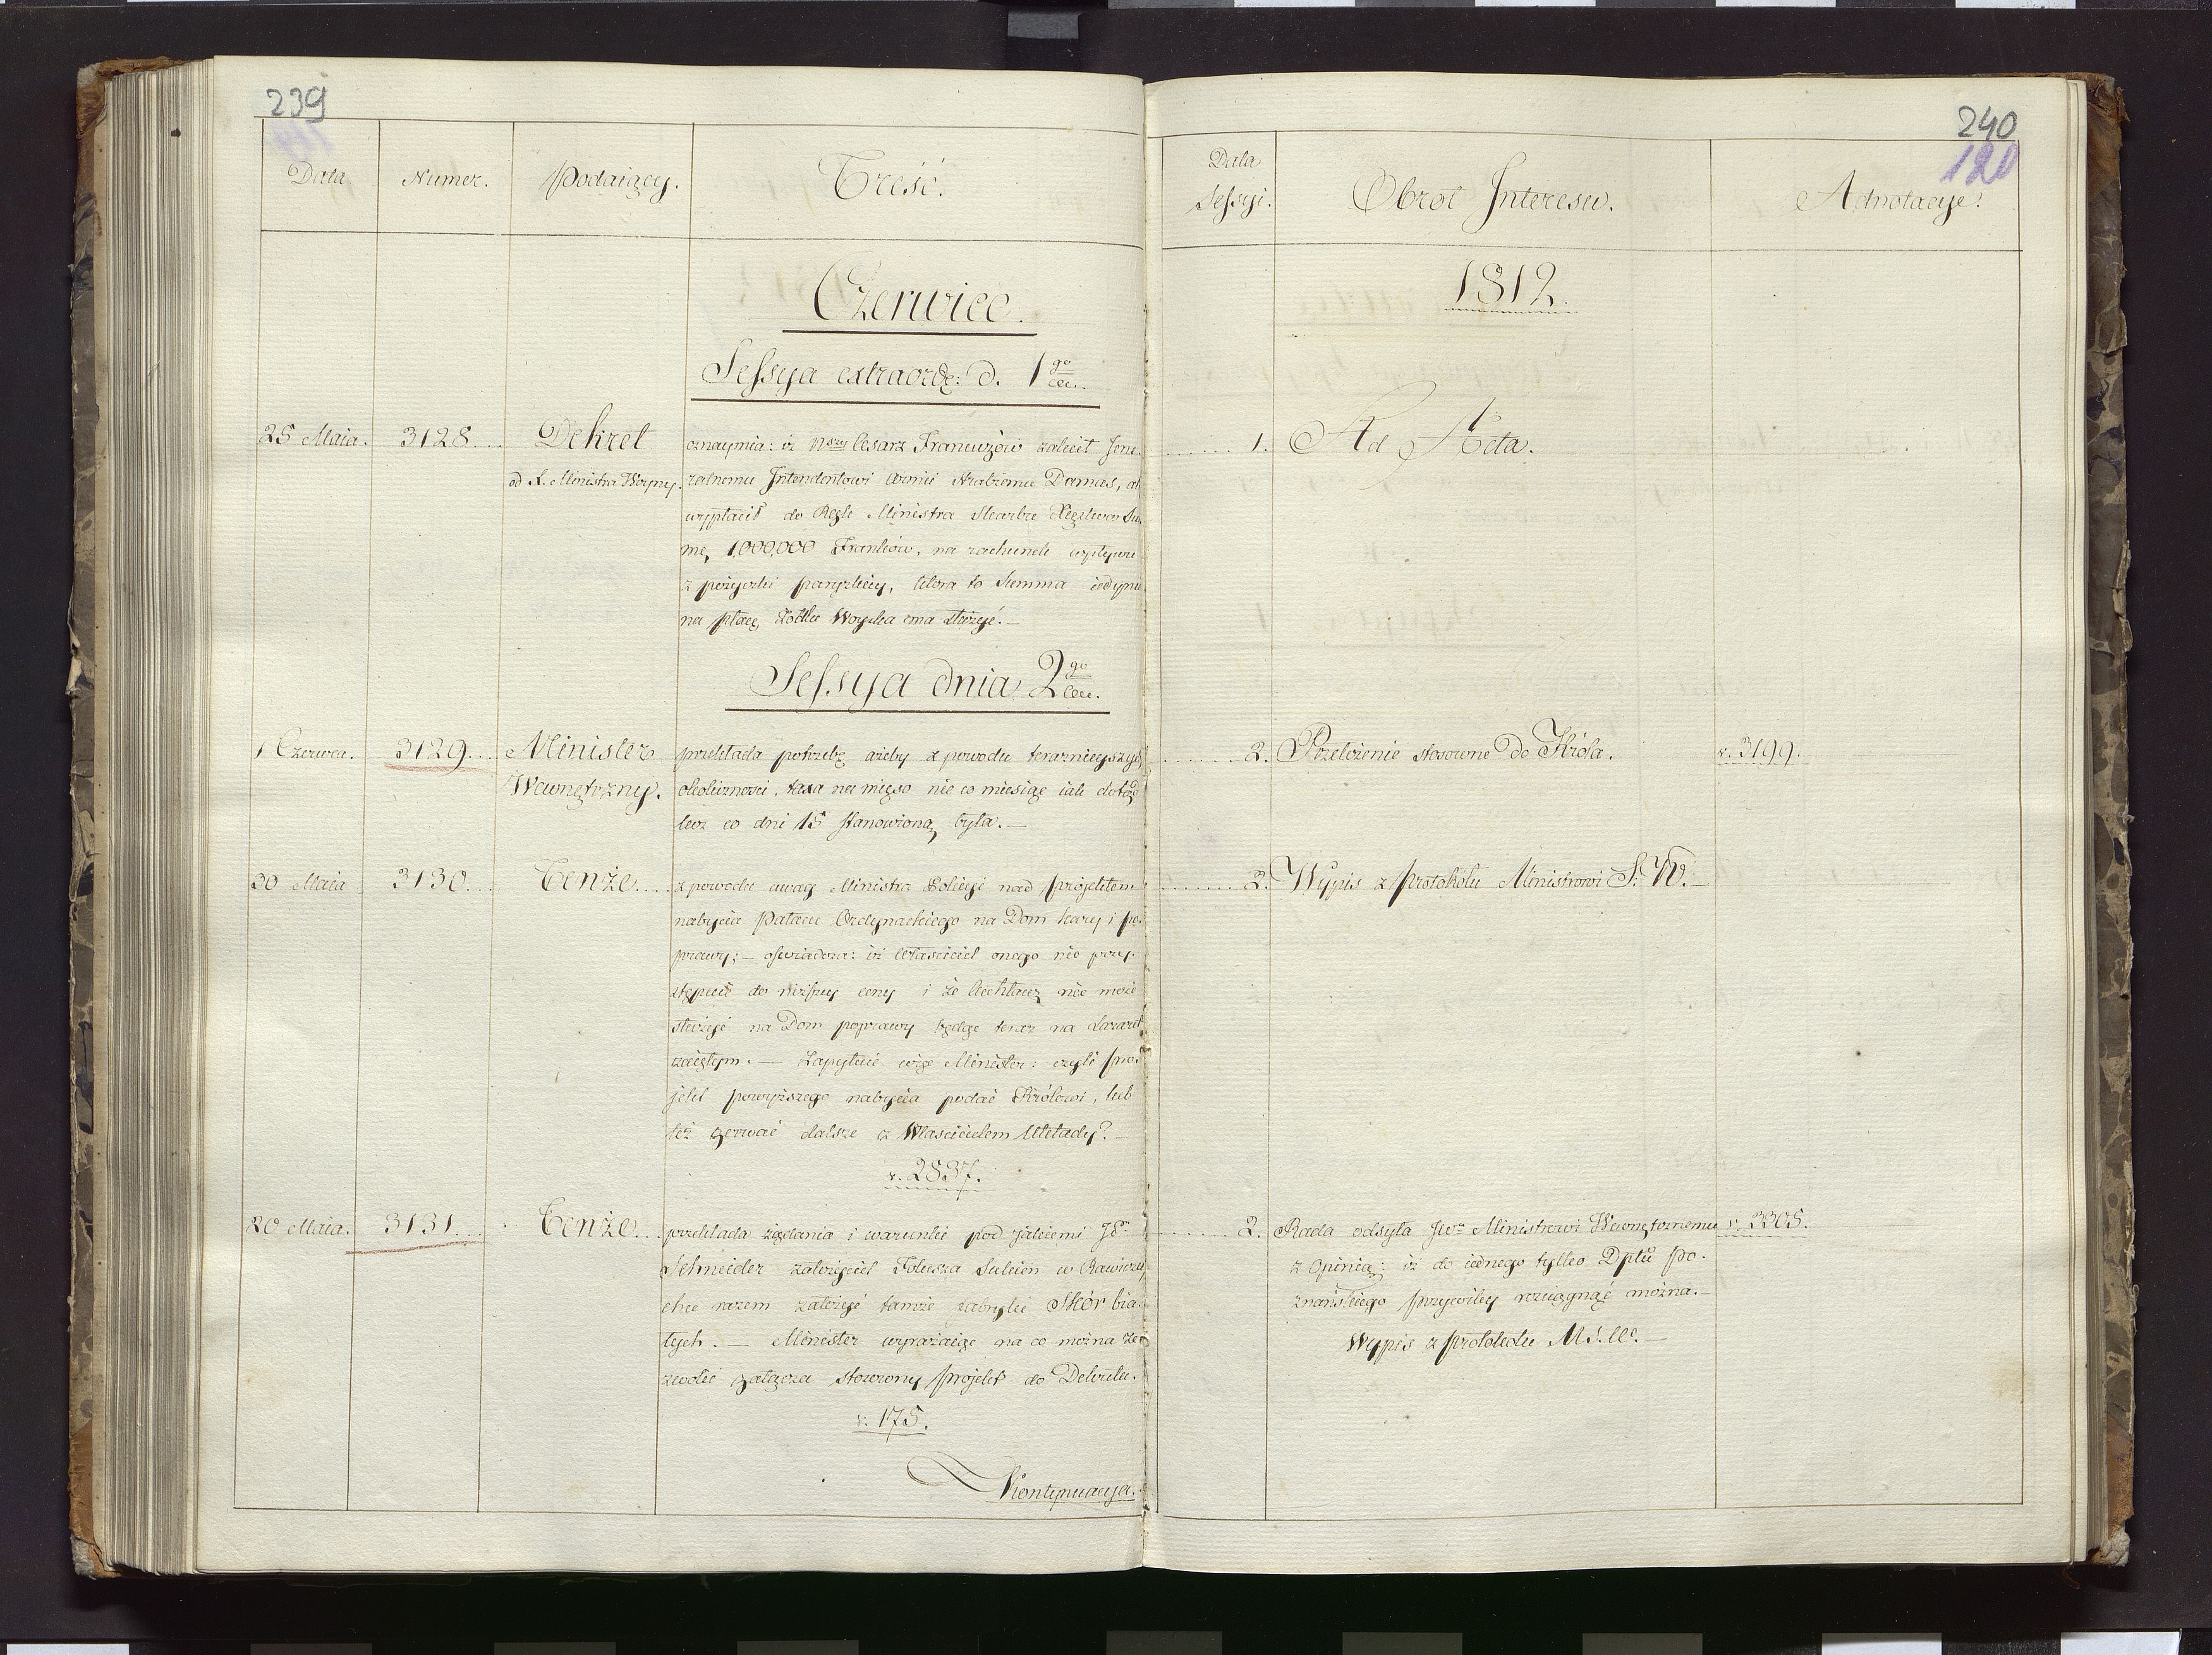 239
Data
Numer.
Podaiący.
Treść.
Czerwiec.
Sessya extraord: d. 1go
25 Maia. 3128. Dekret
od X. Ministra Woyny.
oznaymia: iż Nszy Cesarz Francuzów zalecił Jene-
ralnemu Intendentowi Armii Hrabiemu Dumas, aby
wypłacił do Rąk Ministra Skarbu Xięztwa Sum-
mę 1,000,000 Franków, na rachunek wpływu
z pożyczki paryzkiey, która to Summa iedynie
na płacę Żołdu Woyska ma służyć. —
Sessya dnia 2go
1 Czerwca. 3129. Minister
Wewnętrzny.
przekłada potrzebę ażeby z powodu teraznieyszych
okoliczności, taxa na mięso nie co miesiąc iak dotąd
lecz co dni 15 stanowioną była. —
30 Maia 3130. Tenże
z powodu uwag Ministra Policyi nad projektem
nabycia Pałacu Ordynackiego na Dom kary i po-
prawy; — oświadcza: iż właściciel onego nie przy-
stępuie do niższey ceny i że nie może
służyć na Dom poprawy będąc teraz na Lazaret
zaiętym. — Zapytuie więc Minister: czyli pro-
jekt powyższego nabycia podać Królowi, lub
też zerwać dalsze z Właścicielem Układy? —
v. 2837.
20 Maia. 3131. Tenże
przekłada żądania i warunki pod jakiemi JP.
Schneider założyciel Folusza Sukien w Rawiczu,
chce razem założyć tamże fabrykę Skór bia-
łych. — Minister wyrażaiąc na co można ze-
zwolić załącza stosowny projekt do Dekretu.
v. 175.
Kontynuacya.
240
120
Data
Sessyi.
Obrot Interesu.
Adnotacye.
1812.
1. Ad Acta.
2. Przełożenie stosowne Do Króla. v. 3199.
2. Wypis z protokółu Ministrowi S: W. —
2. Rada odsyła JW. Ministrowi Wewnętrznemu v. 3305.
z Opinią: iż do iednego tylko Dptu Po-
znańskiego przywiley rozciągnąć można. —
Wypis z protokołu M.S.W. —